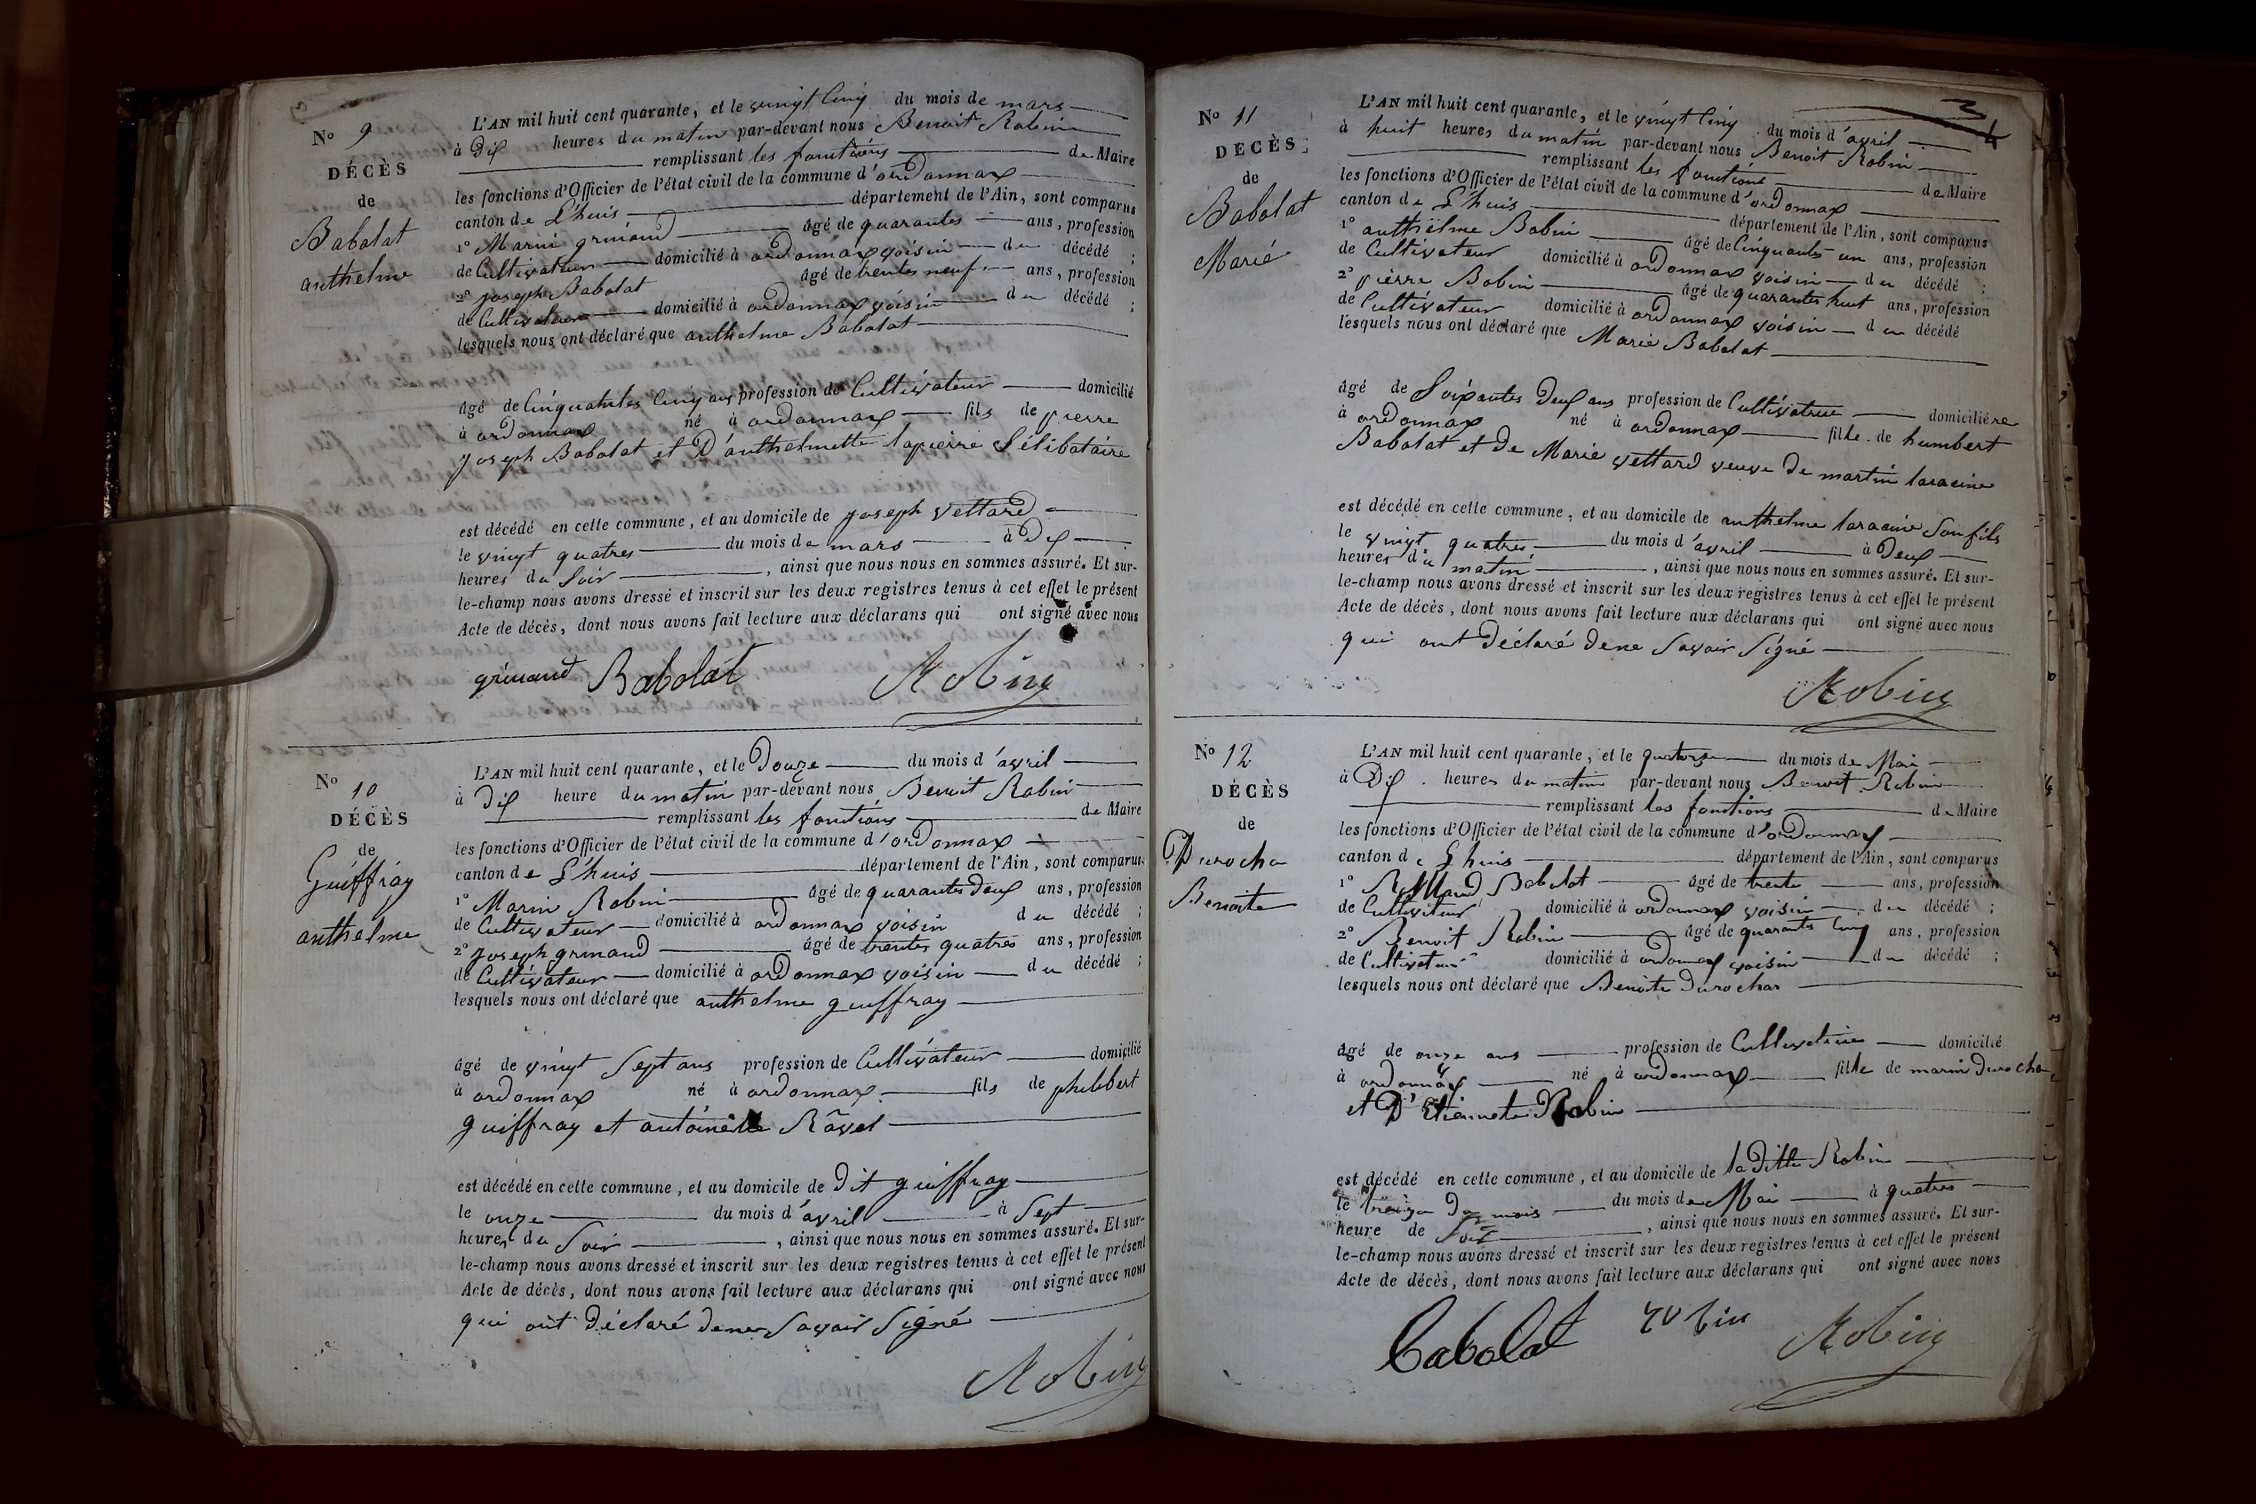 No 9
DÉCÈS
de
Babolat
anthelme
L'AN mil huit cent quarante, et le vingt Cinq du mois de mars
à Dix heures du matin par-devant nous Benoit Robin
remplissant les fonctions de Maire
les fonctions d'Officier de l'état civil de la commune d'ordonnax
canton de L'huis département de l'Ain, sont comparus
1° Marin grinand âgé de quarantes ans, profession
de Cultivateur domicilié à ordonnax voisin du décédé ;
2° joseph Babolat âgé de trentes neuf ans, profession
de Cultivateur domicilié à ordonnax voisin du décédé ;
lesquels nous ont déclaré que anthelme Babolat
âgé de Cinquantes Cinq ans profession de Cultivateur domicilié
à ordonnax né à ordonnax fils de pierre
joseph Babolat et D'anthelmette lapierre Sélibataire
est décédé en cette commune, et au domicile de joseph vettard
le vingt quatres du mois de mars à Dix
heures du Soir , ainsi que nous nous en sommes assuré. Et sur-
le-champ nous avons dressé et inscrit sur les deux registres tenus à cet effet le présent
Acte de décès, dont nous avons fait lecture aux déclarans qui ont signé avec nous
grinand Babolat Robin
No 10
DÉCÈS
de
Guiffray
anthelme
L'AN mil huit cent quarante, et le Douze du mois d'avril
à Dix heure du matin par-devant nous Benoit Robin
remplissant les fonctions de Maire
les fonctions d'Officier de l'état civil de la commune d'ordonnax
canton de L'huis département de l'Ain, sont comparus
1° Marin Robin âgé de quarantes Deux ans, profession
de Cultivateur domicilié à ordonnax voisin du décédé ;
2° joseph grinand âgé de trentes quatres ans, profession
de Cultivateur domicilié à ordonnax voisin du décédé ;
lesquels nous ont déclaré que anthelme guiffray
âgé de vingt Sept ans profession de Cultivateur domicilié
à ordonnax né à ordonnax fils de philibert
guiffray et antoinette Ravet
est décédé en cette commune, et au domicile de Dit guiffray
le onze du mois d'avril à Sept
heures du Soir , ainsi que nous nous en sommes assuré. Et sur-
le-champ nous avons dressé et inscrit sur les deux registres tenus à cet effet le présent
Acte de décès, dont nous avons fait lecture aux déclarans qui ont signé avec nous
qui ont Déclaré dene Savoir Signé
Robin
No 11
DÉCÈS
de
Babolat
Marie
L'AN mil huit cent quarante, et le vingt Cinq du mois d'avril
à huit heures du matin par-devant nous Benoit Robin
remplissant les fonctions de Maire
les fonctions d'Officier de l'état civil de la commune d'ordonnax
canton de L'huis département de l'Ain, sont comparus
1° anthelme Bobin âgé de Cinquantes un ans, profession
de Cultivateur domicilié à ordonnax voisin du décédé ;
2° pierre Bobin âgé de quarantes huit ans, profession
de Cultivateur domicilié à ordonnax voisin du décédé
lesquels nous ont déclaré que Marie Babolat
âgé de Soixantes Deux ans profession de Cultivatrice domiciliére
à ordonnax né à ordonnax fille de humbert
Babolat et De Marie vettard veuve De martin laracine
est décédé en cette commune, et au domicile de anthelme laracine Son fils
le vingt quatres du mois d'avril à Deux
heures du matin , ainsi que nous nous en sommes assuré. Et sur-
le-champ nous avons dressé et inscrit sur les deux registres tenus à cet effet le présent
Acte de décès, dont nous avons fait lecture aux déclarans qui ont signé avec nous
qui ont Déclaré dene Savoir Signé
Robin
No 12
DÉCÈS
de
Durocha
Benoite
L'AN mil huit cent quarante, et le quatorze du mois de Mai
à Dix heures du matin par-devant nous Benoit Robin
remplissant les fonctions de Maire
les fonctions d'Officier de l'état civil de la commune d'ordonnax
canton de L'huis département de l'Ain, sont comparus
1° Babolat âgé de trente ans, profession
de Cultivateur domicilié à ordonnax voisin du décédé ;
2° Benoit Robin âgé de quarantes Cinq ans, profession
de Cultivateur domicilié à ordonnax voisin du décédé ;
lesquels nous ont déclaré que Benoite Durochas
âgé de onze ans profession de Cultivatrice domicilié
à ordonnax né à ordonnax fille de marin Durocha
et D'Etiennete Robin
est décédé en cette commune, et au domicile de la Ditte Robin
le treize Du mois du mois de Mai à quatres
heure de Soir , ainsi que nous nous en sommes assuré. Et sur-
le-champ nous avons dressé et inscrit sur les deux registres tenus à cet effet le présent
Acte de décès, dont nous avons fait lecture aux déclarans qui ont signé avec nous
Babolat robin Robin